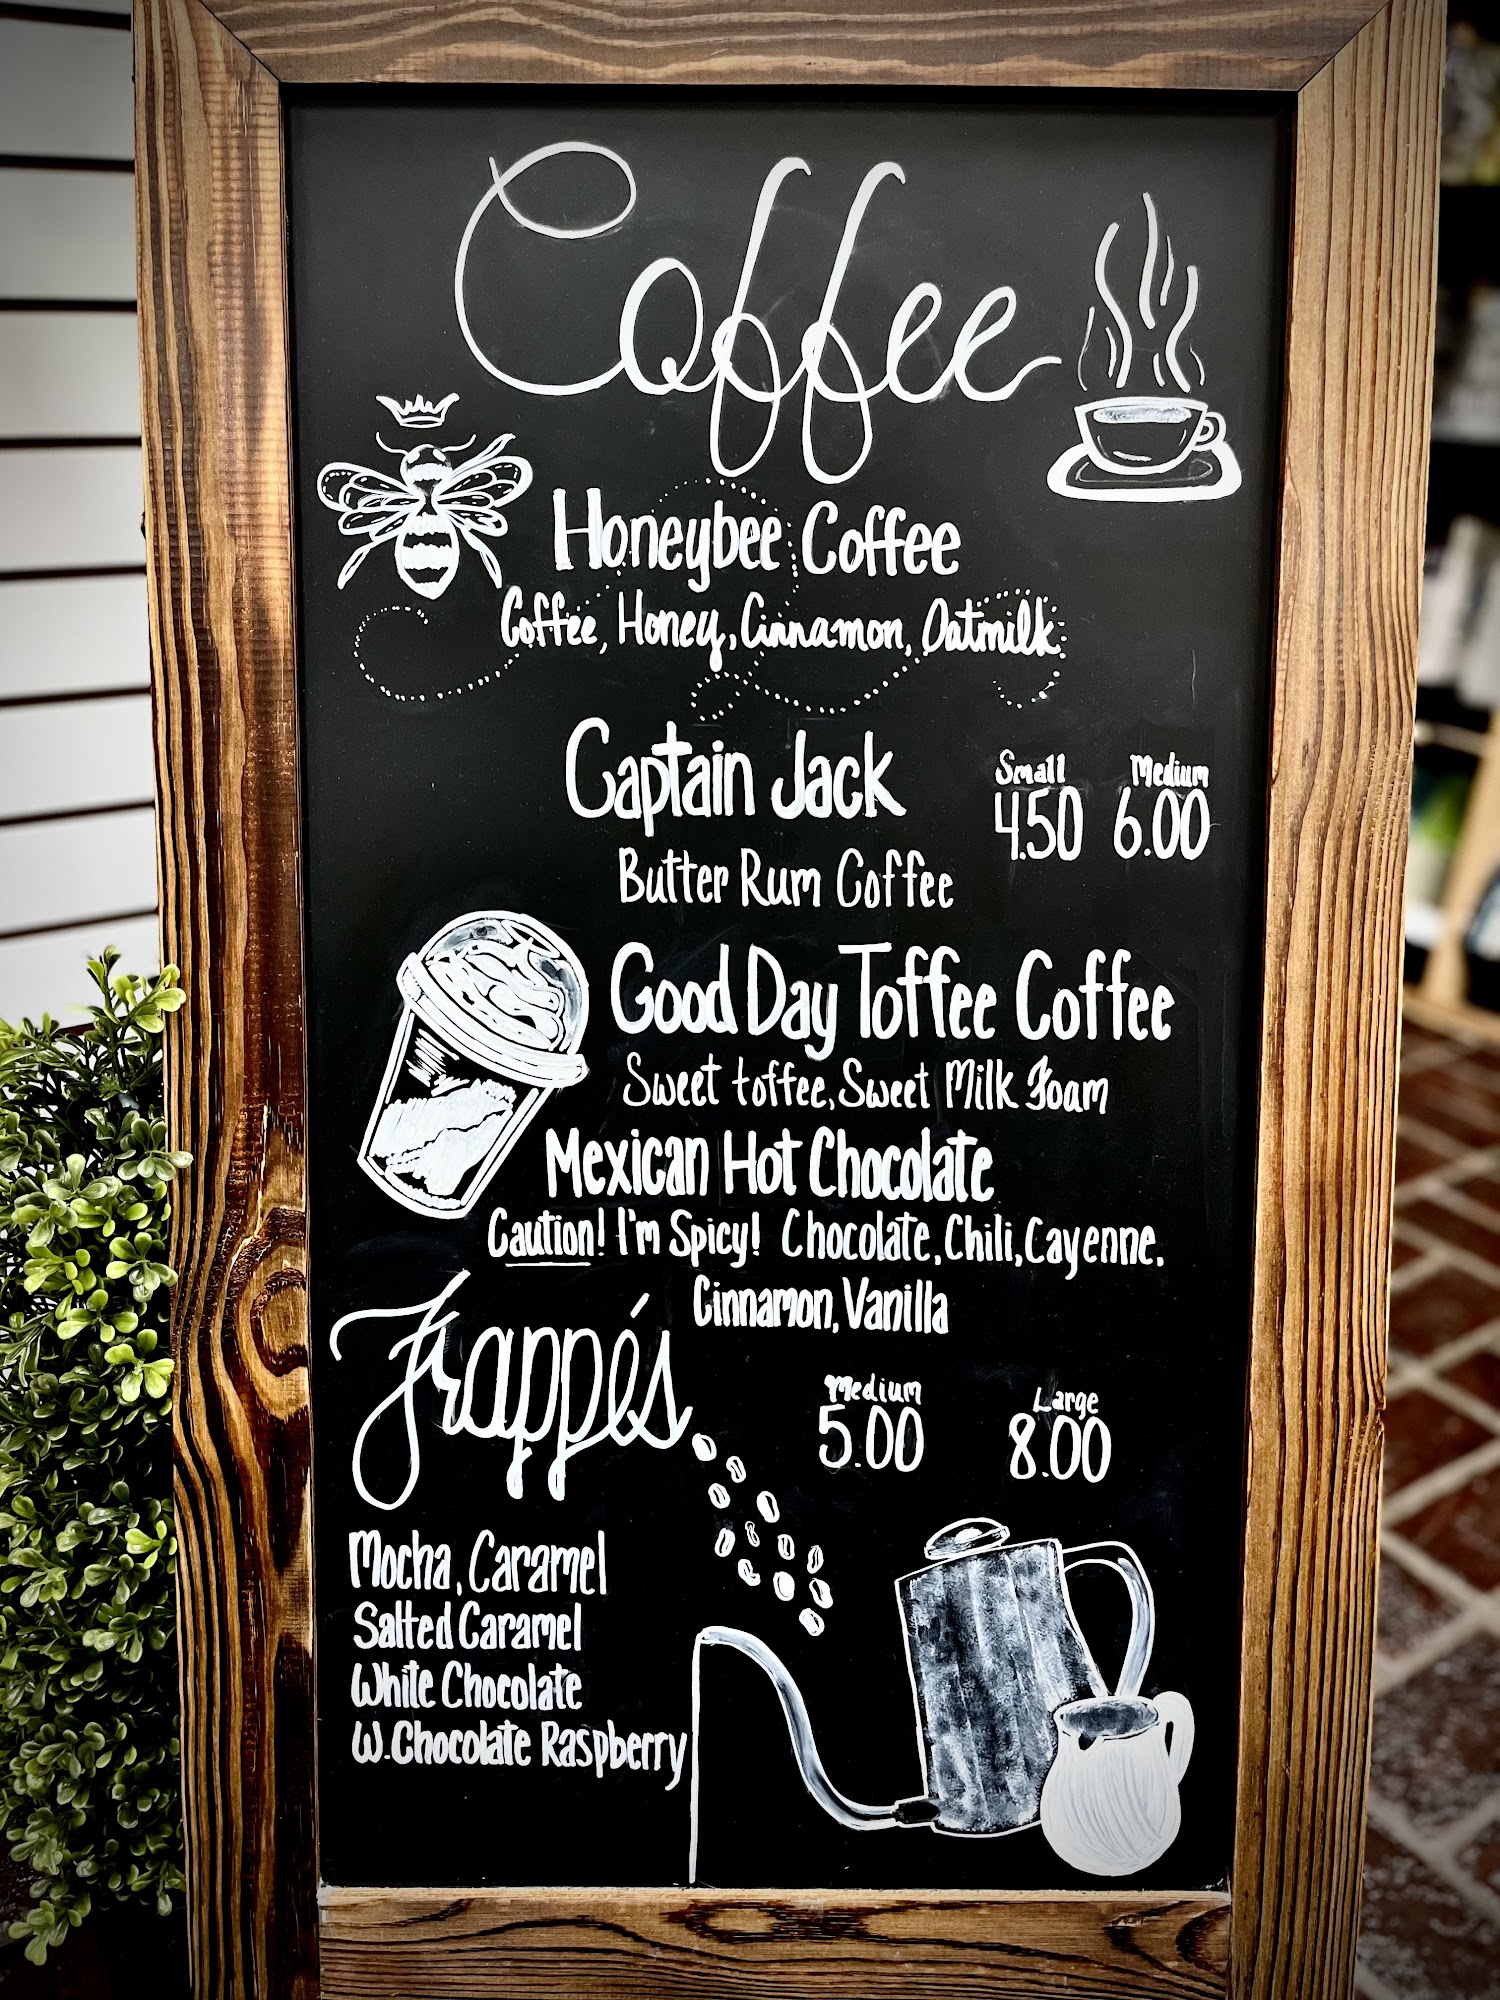 Coffee
Honeybee Coffee
Coffee, Honey, Cinnamon, Oatmilk
Captain Jack
Small Medium
4.50 6.00
Butter Rum Coffee
Good Day Toffee Coffee
Sweet toffee, Sweet Milk Foam
Mexican Hot Chocolate
Caution! I'm Spicy! Chocolate, Chili, Cayenne,
Cinnamon, Vanilla
Frappés
Medium Large
5.00 8.00
Mocha, Caramel
Salted Caramel
White Chocolate
W. Chocolate Raspberry